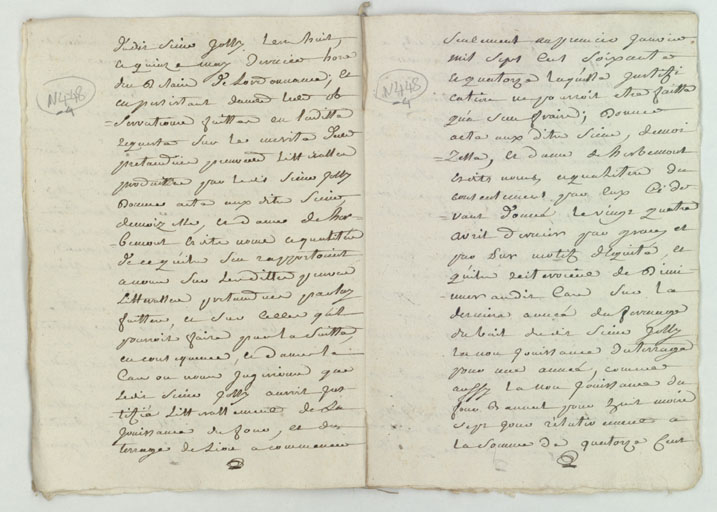 N448
ledit Sieur Jolly les huit,
et quinze may dernier hors
du delaie de Lordonnance; et
en persistant dans les ob
=servations faittes en laditte
requete sur les merites des
pretendües preuves litterales
produittes par ledit Sieur Jolly
donner acte aux dits Sieur,
demoizelle, et dames de her=
bemont esdits noms et qualités
de ce qu'ils se rapportoient
a nous sur lesdittes preuves
litterales pretendües par luy
faittes, et sur celles qu'il
pourroit faire par la suitte,
en consequence, et dans le
Cas ou nous jugerions que
ledit Sieur Jolly auroit jus
tifié litteralement de la
jouissance du four, et du
terrage de Sion a commencer
N448
seulement au premier janvier
mil sept cent soixante
et quatorze laquelle justifi
cation ne pourroit etre faitte
qua ses fraix; donner
acte aux dits Sieur, demoi
zelle, et dames de herbemont
esdits noms et qualités du
consentement par eux ci de
vant donné le vingt quatre
avril dernier par grace et
par pur motif d'equité, et
qu'ils reiteroient de dimi
nuer audit Cas sur la
derniere année du fermage
du bail dudit Sieur Jolly
la non jouissance du terrage
pour une année, comme
aussy la non jouissance du
four bannal pour huit mois
sept jours relativement a
la somme de quatorze Cent